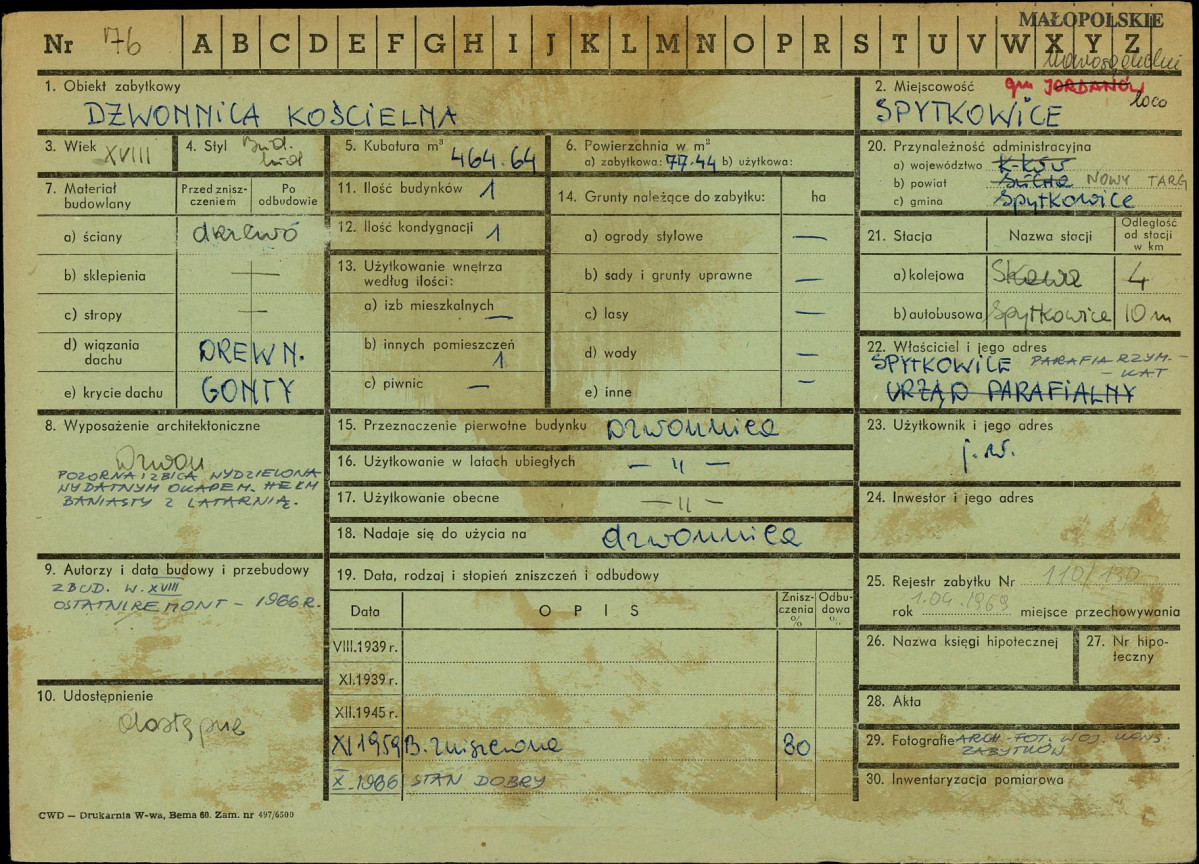 MAŁOPOLSKIE
Nr 176 A B C D E F G H I J K L M N O P R S T U V W X Y Z
nowosądeckie
1. Obiekt zabytkowy
DZWONNICA KOŚCIELNA
2. Miejscowość gm JORDANÓW
SPYTKOWICE loco
3. Wiek XVIII
4. Styl Bud. lud
5. Kubatura m³ 464.64
6. Powierzchnia w m²
a) zabytkowa: 77.44 b) użytkowa:
7. Materiał budowlany
Przed zniszczeniem
Po odbudowie
a) ściany drzewo
b) sklepienia —
c) stropy —
d) wiązania dachu DREWN.
e) krycie dachu GONTY
11. Ilość budynków 1
12. Ilość kondygnacji 1
13. Użytkowanie wnętrza
według ilości:
a) izb mieszkalnych —
b) innych pomieszczeń 1
c) piwnic —
14. Grunty należące do zabytku: ha
a) ogrody stylowe —
b) sady i grunty uprawne —
c) lasy —
d) wody —
e) inne —
20. Przynależność administracyjna
a) województwo K-ków
b) powiat Sucha NOWY TARG
c) gmina Spytkowice
21. Stacja
Nazwa stacji
Odległość od stacji w km
a) kolejowa Skawa 4
b) autobusowa Spytkowice 10 m
22. Właściciel i jego adres
SPYTKOWICE PARAFIA RZYM-
-KAT
URZĄD PARAFIALNY
8. Wyposażenie architektoniczne
Dzwon
POZORNA IZBICA WYDZIELONA
WYDATNYM OKAPEM. HEŁM
BANIASTY Z LATARNIĄ.
15. Przeznaczenie pierwotne budynku Dzwonnica
16. Użytkowanie w latach ubiegłych — " —
17. Użytkowanie obecne — " —
18. Nadaje się do użycia na dzwonnica
23. Użytkownik i jego adres
j. w.
24. Inwestor i jego adres
9. Autorzy i data budowy i przebudowy
ZBUD. W. XVIII
OSTATNI REMONT - 1966 R.
10. Udostępnienie
dostępne
19. Data, rodzaj i stopień zniszczeń i odbudowy
Data
OPIS
Zniszczenia %
Odbudowa %
VIII.1939 r.
XI.1939 r.
XII.1945 r.
XI 1959 B. zniszczona 30
X.1966 STAN DOBRY
25. Rejestr zabytku Nr 110/130
rok 1.04.1969 miejsce przechowywania
26. Nazwa księgi hipotecznej
27. Nr hipoteczny
28. Akta
29. Fotografie ARCH. FOT. WOJ. KONS.
ZABYTKÓW
30. Inwentaryzacja pomiarowa
CWD — Drukarnia W-wa, Bema 60. Zam. nr 497/6500